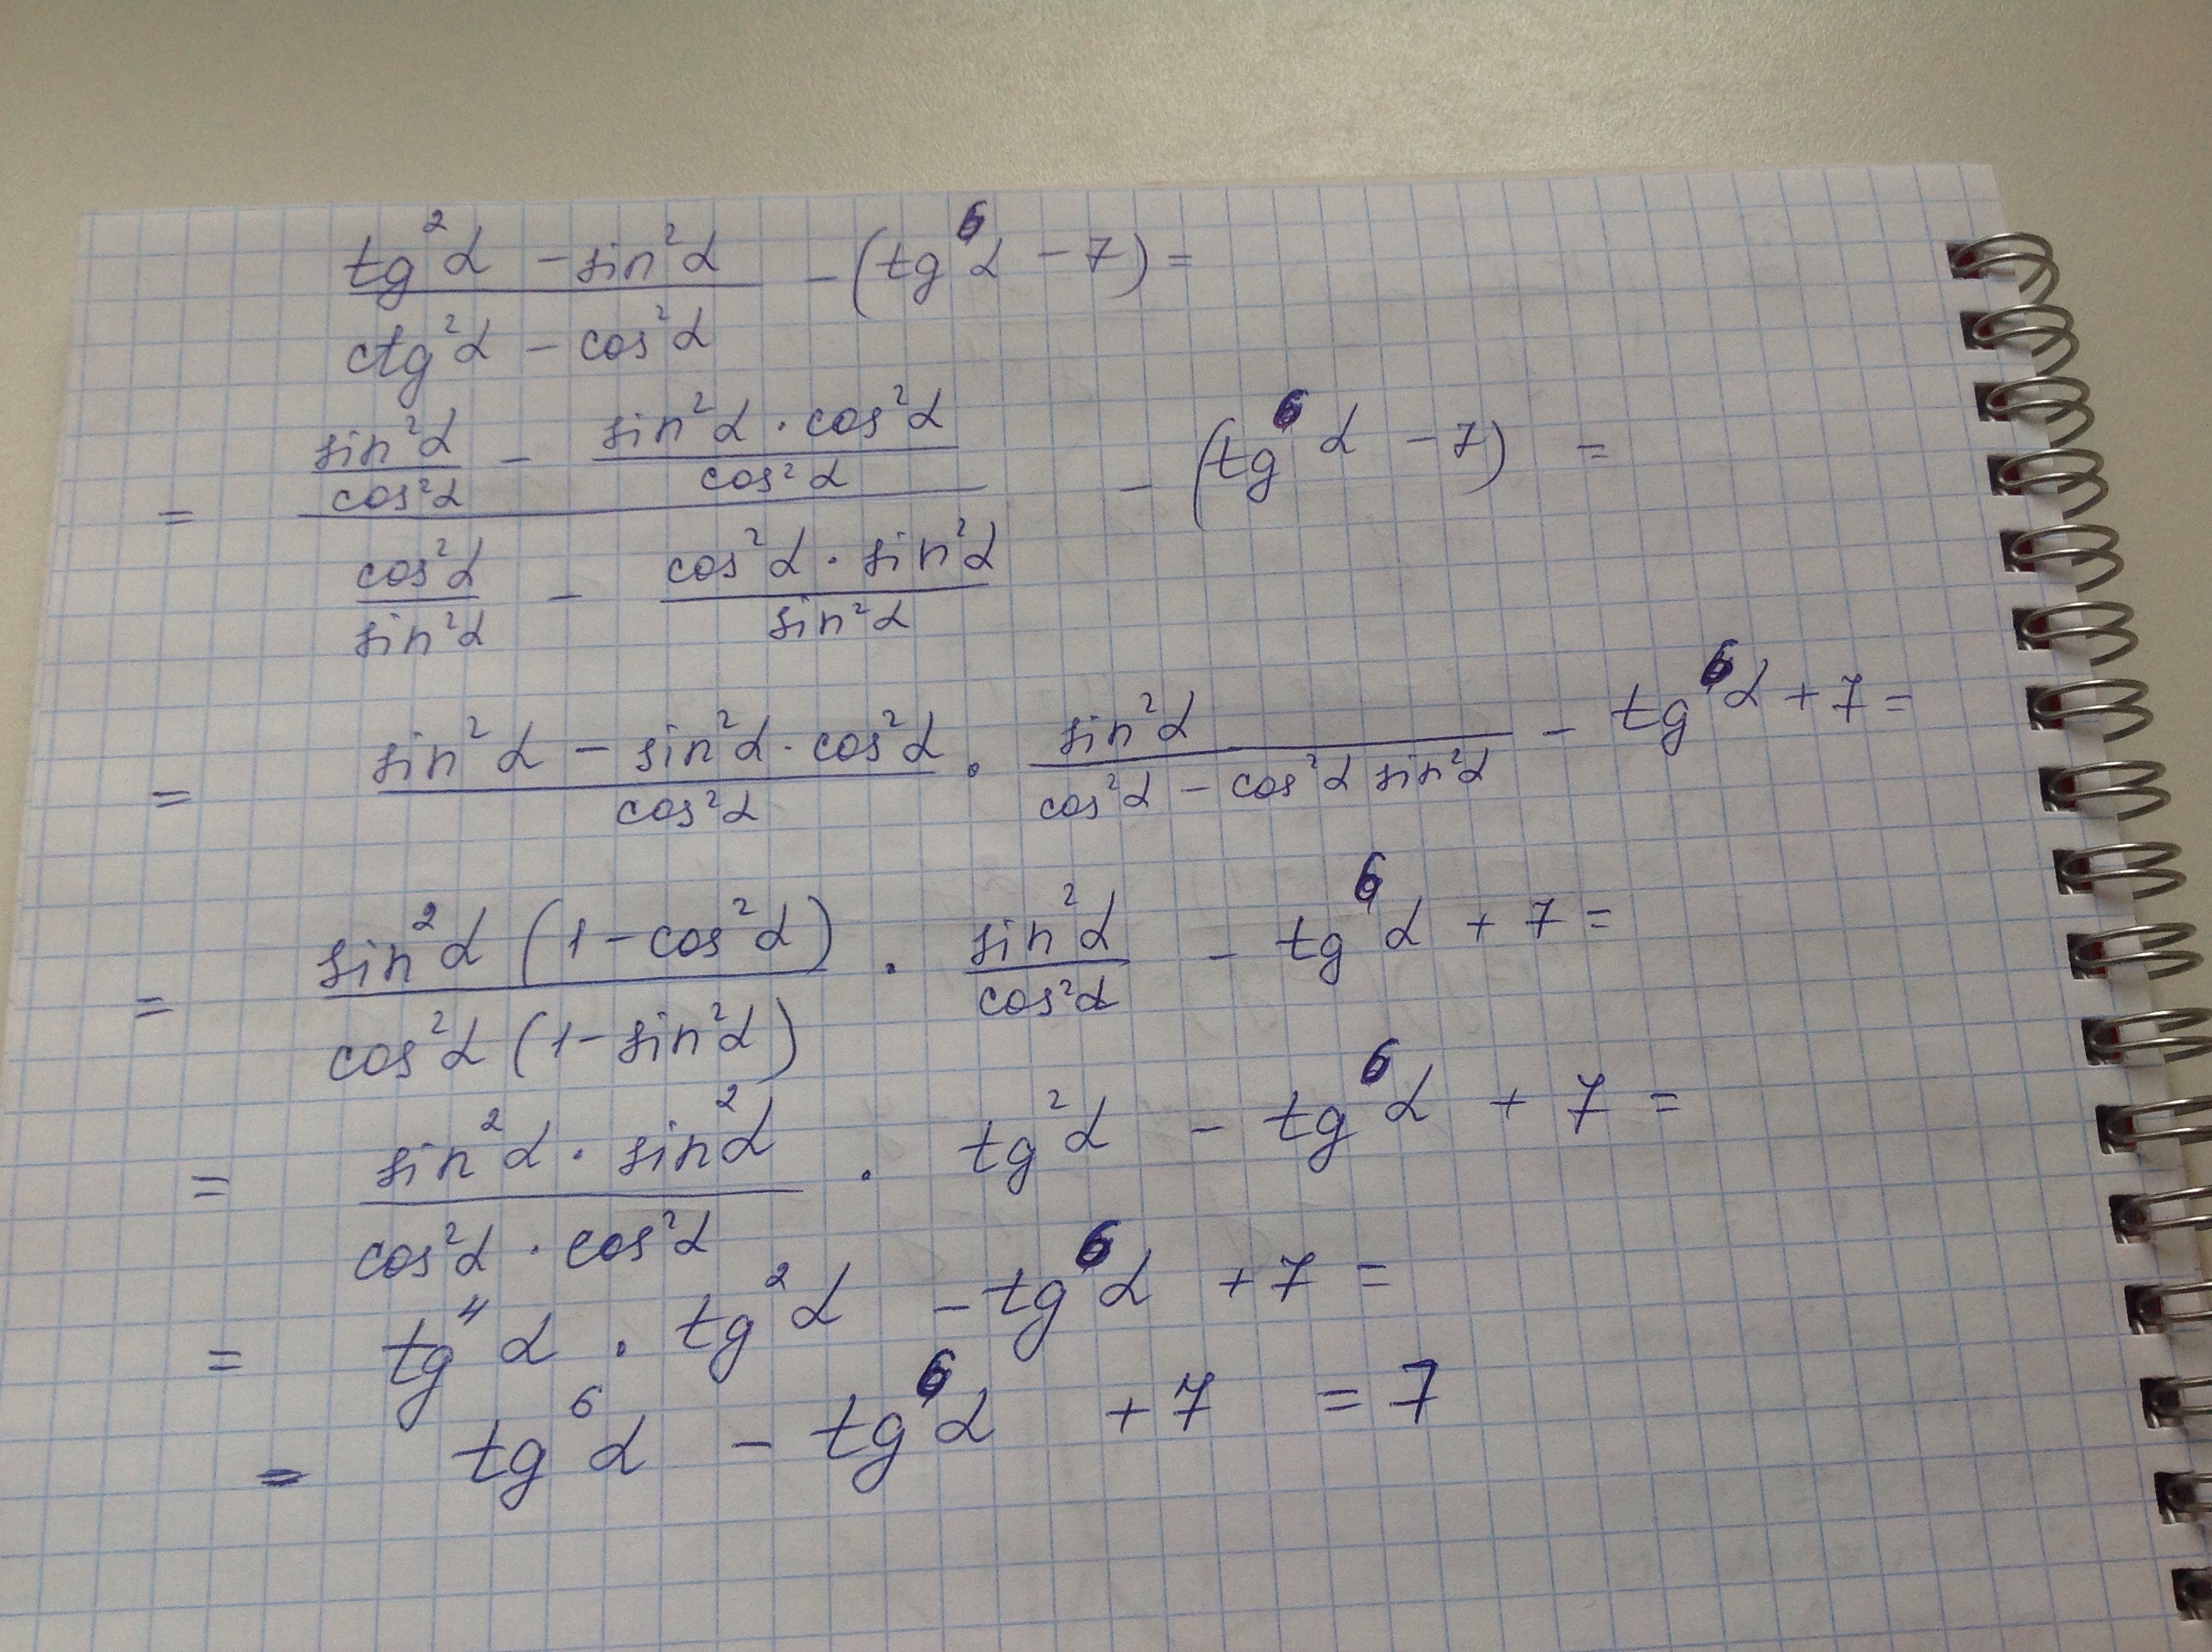 tg²α − sin²α / ctg²α − cos²α − (tg⁶α − 7) =
= (sin²α/cos²α − sin²α · cos²α/cos²α) / (cos²α/sin²α − cos²α · sin²α/sin²α) − (tg⁶α − 7) =
= sin²α − sin²α · cos²α / cos²α · sin²α / cos²α − cos²α sin²α − tg⁶α + 7 =
= sin²α (1 − cos²α) / cos²α (1 − sin²α) · sin²α / cos²α − tg⁶α + 7 =
= sin²α · sin²α / cos²α · cos²α · tg²α − tg⁶α + 7 =
= tg⁴α · tg²α − tg⁶α + 7 =
= tg⁶α − tg⁶α + 7 = 7